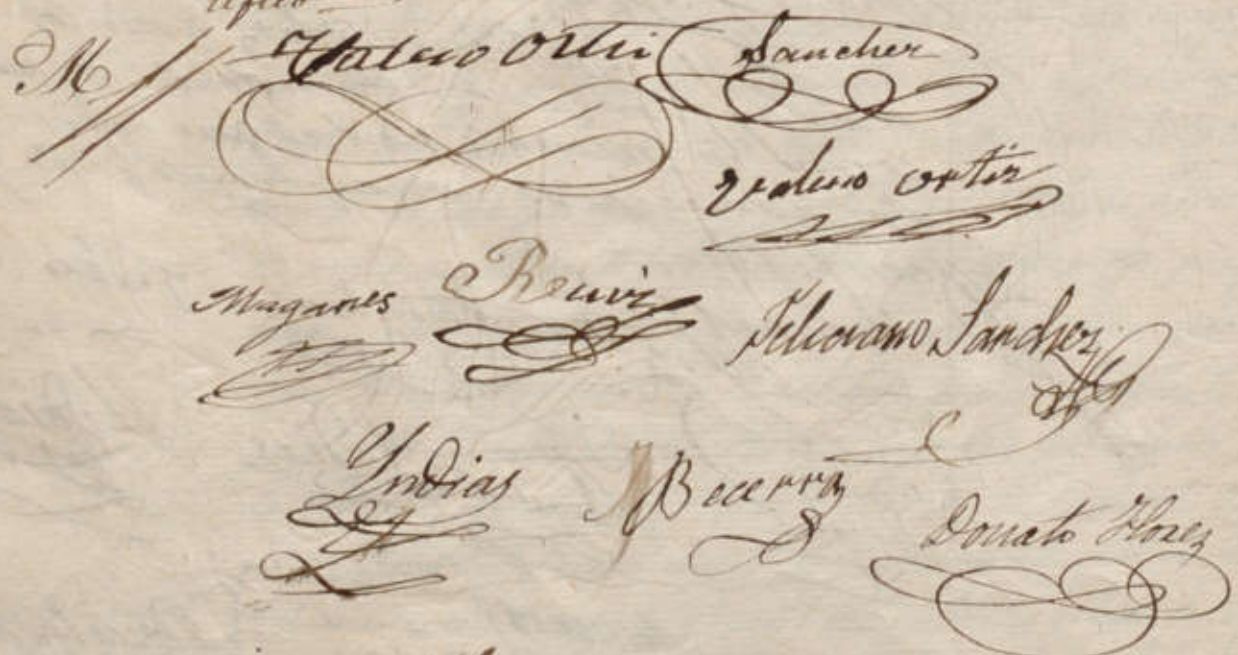 M // Valero Orti Sancher
Valero Ortiz
Maganes Feliciano Sanchez
Yndias Becerra
Donato Florez